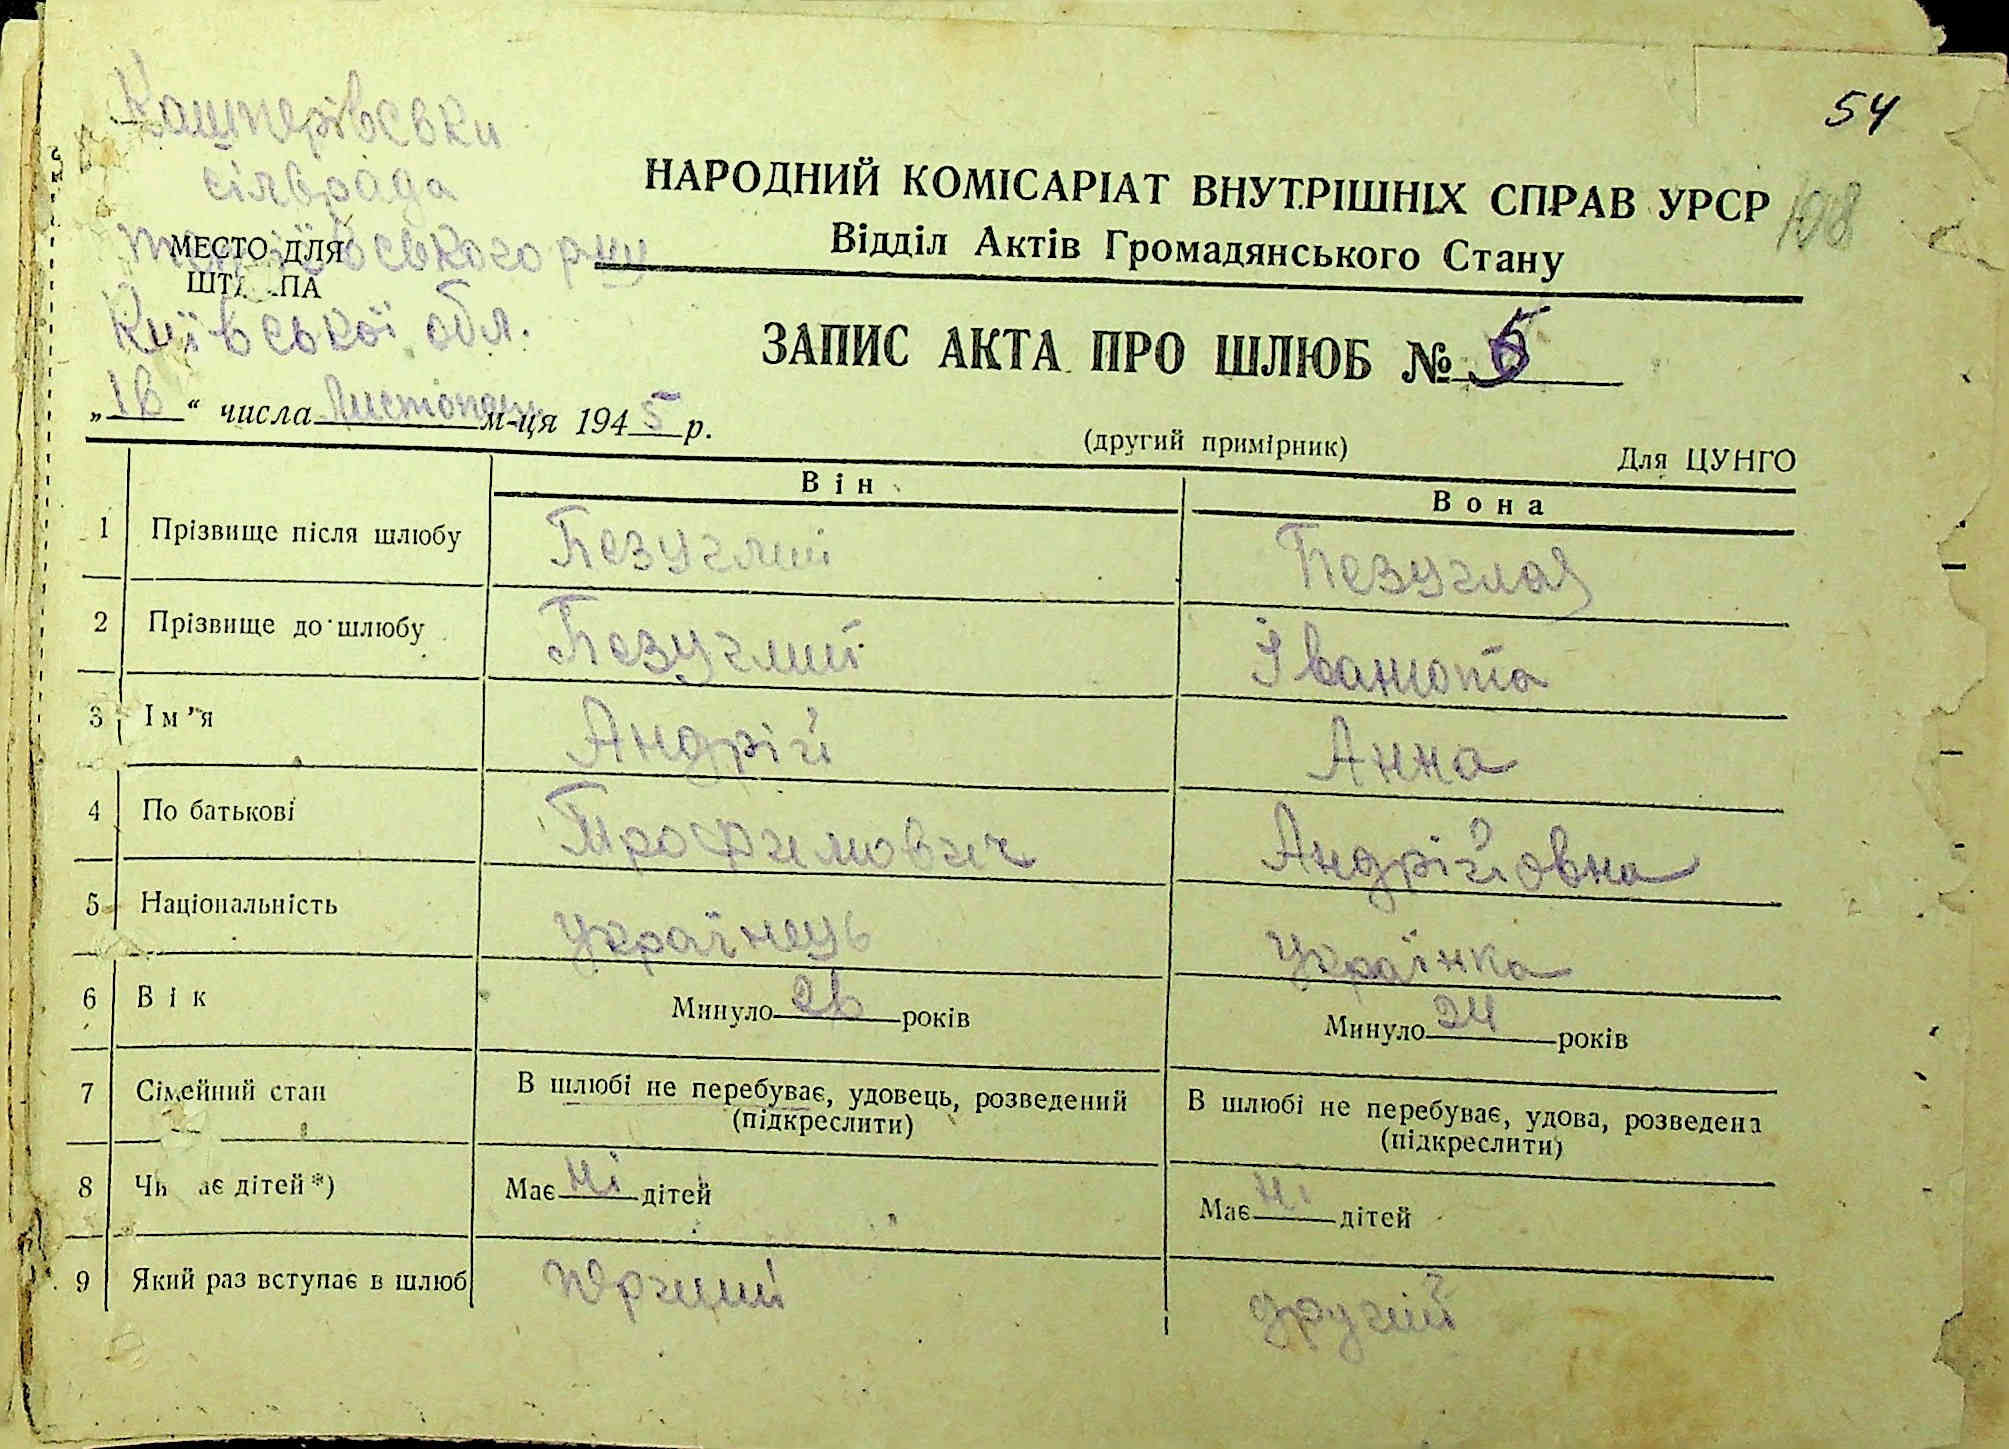 54
сілврада
НАРОДНИЙ КОМІСАРІАТ ВНУТРІШНІХ СПРАВ УРСР 108
Відділ Актів Громадянського Стану
МЕСТО ДЛЯ
Київської обл.
ЗАПИС АКТА ПРО ШЛЮБ №
„16“ числа Листопад м-ця 1945 р.
(другий примірник) Для ЦУНГО
Він Вона
1 Прізвище після шлюбу Безуглий Безуглая
2 Прізвище до шлюбу Безуглий Іванюта
3 Ім'я Андрій Анна
4 По батькові Трофимович Андрійовна
5 Національність українець українка
6 Вік Минуло 26 років Минуло 24 років
7 Сімейний стан В шлюбі не перебуває, удовець, розведений (підкреслити) В шлюбі не перебуває, удова, розведена (підкреслити)
8 дітей*) Має ні дітей Має ні дітей
9 Який раз вступає в шлюб другий